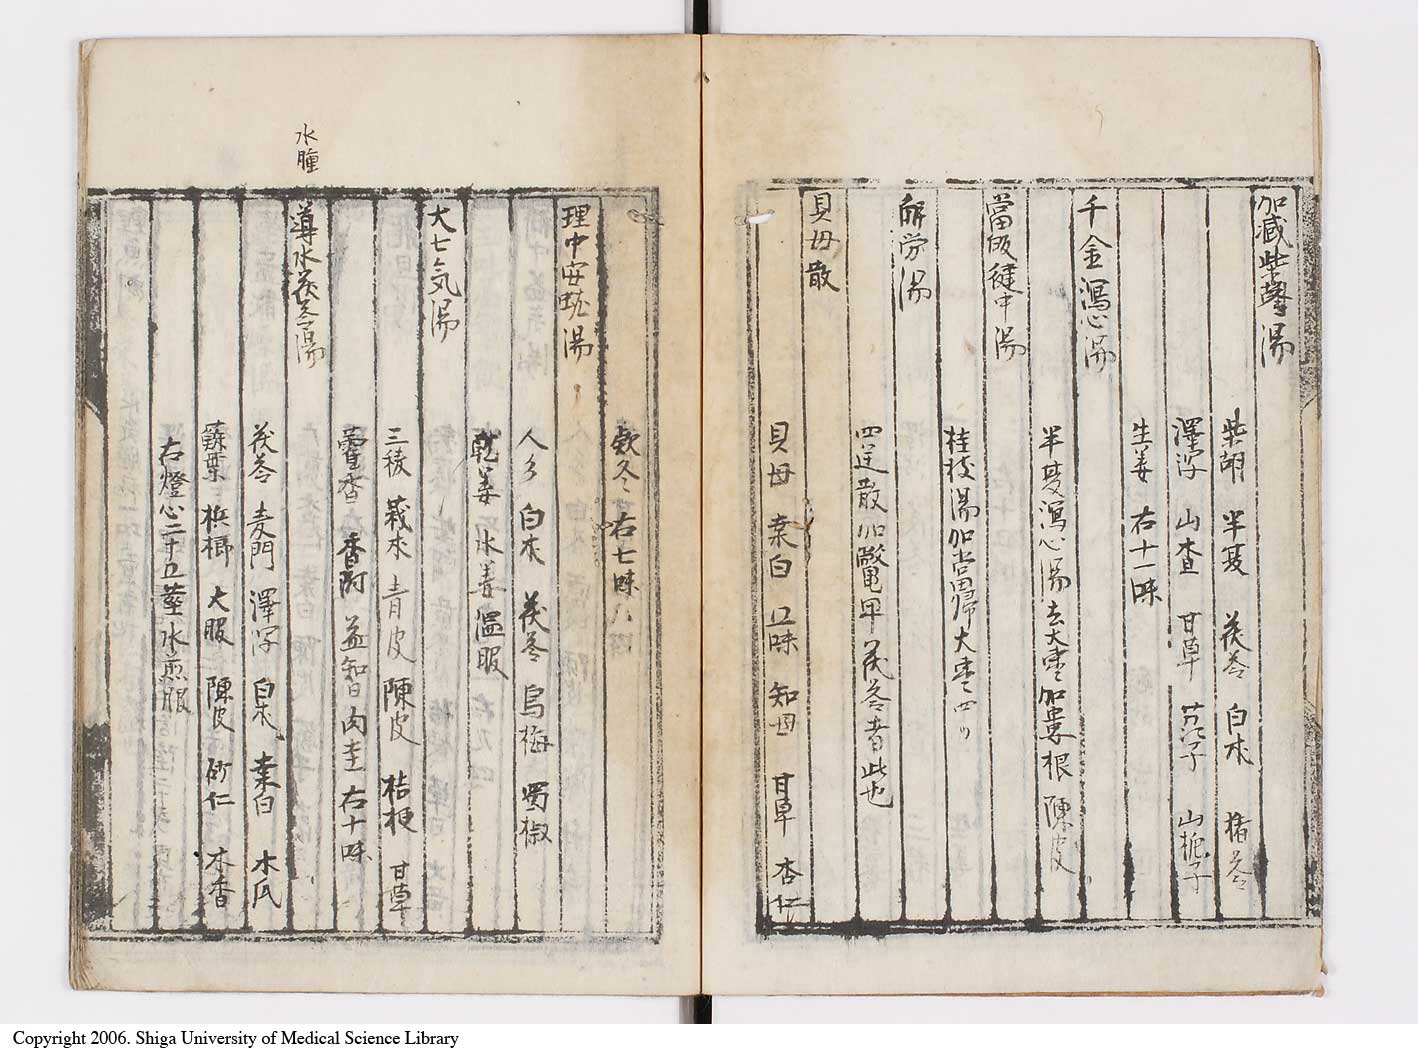 加減柴苓湯
柴胡 半夏 茯苓 白朮 猪苓
澤瀉 山查 甘草 山梔子
生姜 右十一味
千金瀉心湯
半夏瀉心湯去大棗加 根 陳皮
當皈健中湯
桂枝湯加當帰大棗四
解労湯
四逆散加鼈甲茯苓者此也
貝母散
貝母 桒白 五味 知母 甘草 杏仁
欵冬 右七味
理中安蛔湯
人参 白朮 茯苓 烏梅 蜀椒
乾姜 水煮温服
大七気湯
三稜 莪朮 青皮 陳皮 桔梗 甘草
藿香 香附 益知 肉圭 右十味
水腫
導水茯苓湯
茯苓 麦門 澤泻 白朮 桒白 木瓜
蘓葉 槟榔 大服 陳皮 砂仁 木香
右燈心二十五莖水煎服
Copyright 2006. Shiga University of Medical Science Library